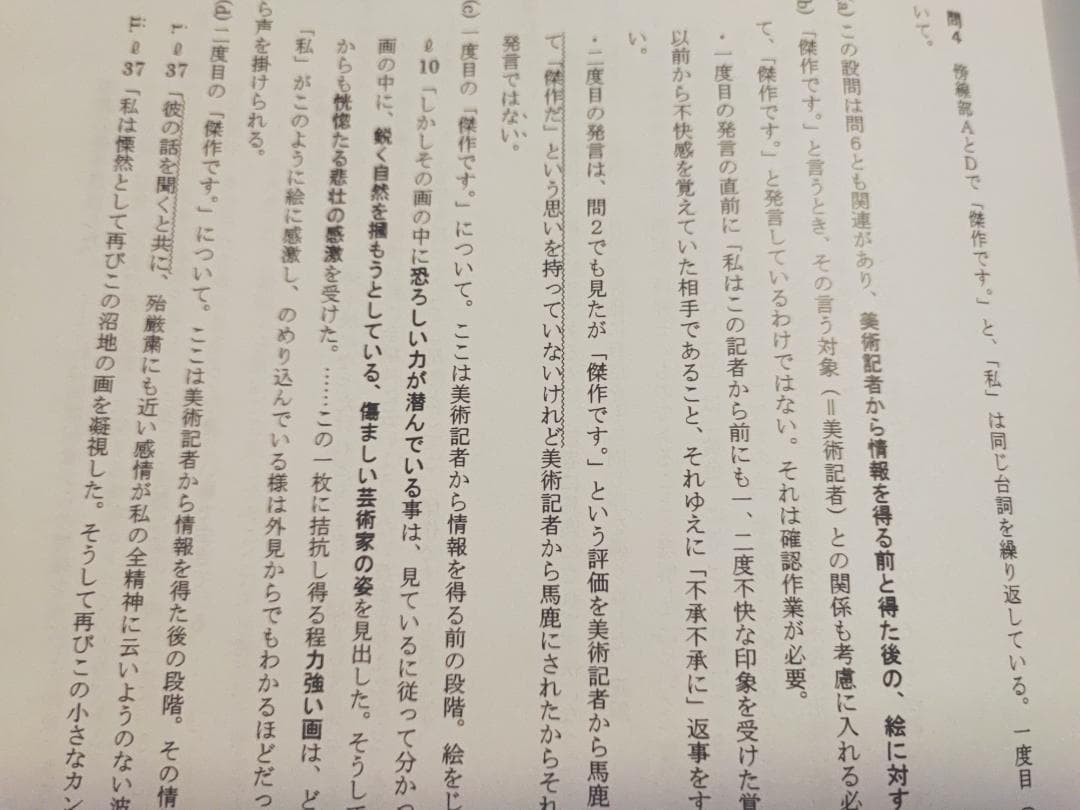 問4　傍線部AとDで「傑作です。」と、「私」は同じ台詞を繰り返している。一度目
いて。
(a) この設問は問6とも関連があり、美術記者から情報を得る前と得た後の、絵に対す
(b)「傑作です。」と言うとき、その言う対象（＝美術記者）との関係も考慮に入れる必
て、「傑作です。」と発言しているわけではない。それは確認作業が必要。
・一度目の発言の直前に「私はこの記者から前にも一、二度不快な印象を受けた覚
以前から不快感を覚えていた相手であること、それゆえに「不承不承に」返事をす
い。
・二度目の発言は、問2でも見たが「傑作です。」という評価を美術記者から馬鹿
て「傑作だ」という思いを持っていないけれど美術記者から馬鹿にされたからそれ
発言ではない。
(c) 一度目の「傑作です。」について。ここは美術記者から情報を得る前の段階。絵をじ
ℓ10「しかしその画の中に恐ろしい力が潜んでいる事は、見ているに従って分かっ
画の中に、鋭く自然を摑もうとしている、傷ましい芸術家の姿を見出した。そうして
からも恍惚たる悲壮の感激を受けた。……この一枚に拮抗し得る程力強い画は、ど
「私」がこのように絵に感激し、のめり込んでいる様は外見からでもわかるほどだっ
ら声を掛けられる。
(d) 二度目の「傑作です。」について。ここは美術記者から情報を得た後の段階。その情
i. ℓ37「彼の話を聞くと共に、殆厳粛にも近い感情が私の全精神に云いようのない波
ii. ℓ37「私は慄然として再びこの沼地の画を凝視した。そうして再びこの小さなカン